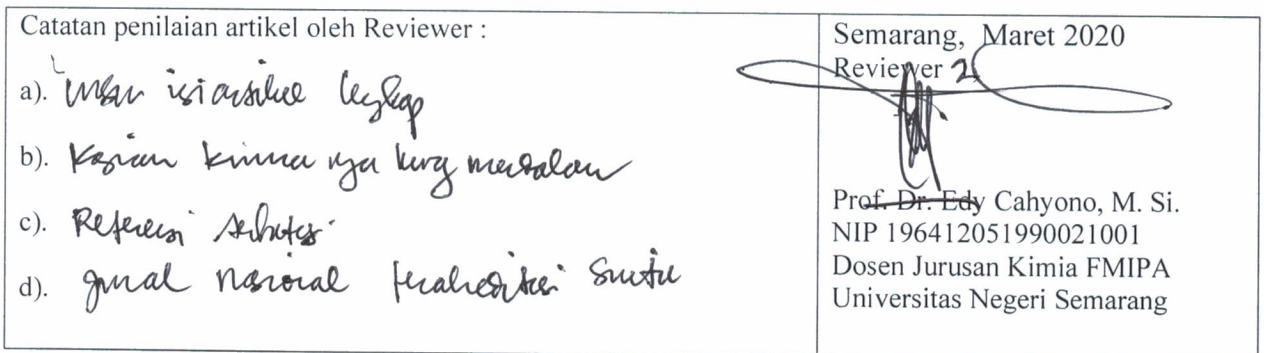 Catatan penilaian artikel oleh Reviewer :
a). Unsur isi artikel lengkap
b). Kajian kimia nya kurg mendalam
c). Referensi
d). jurnal nasional terakreditasi Sinta
Semarang, Maret 2020
Reviewer 2
Prof. Dr. Edy Cahyono, M. Si.
NIP 196412051990021001
Dosen Jurusan Kimia FMIPA
Universitas Negeri Semarang